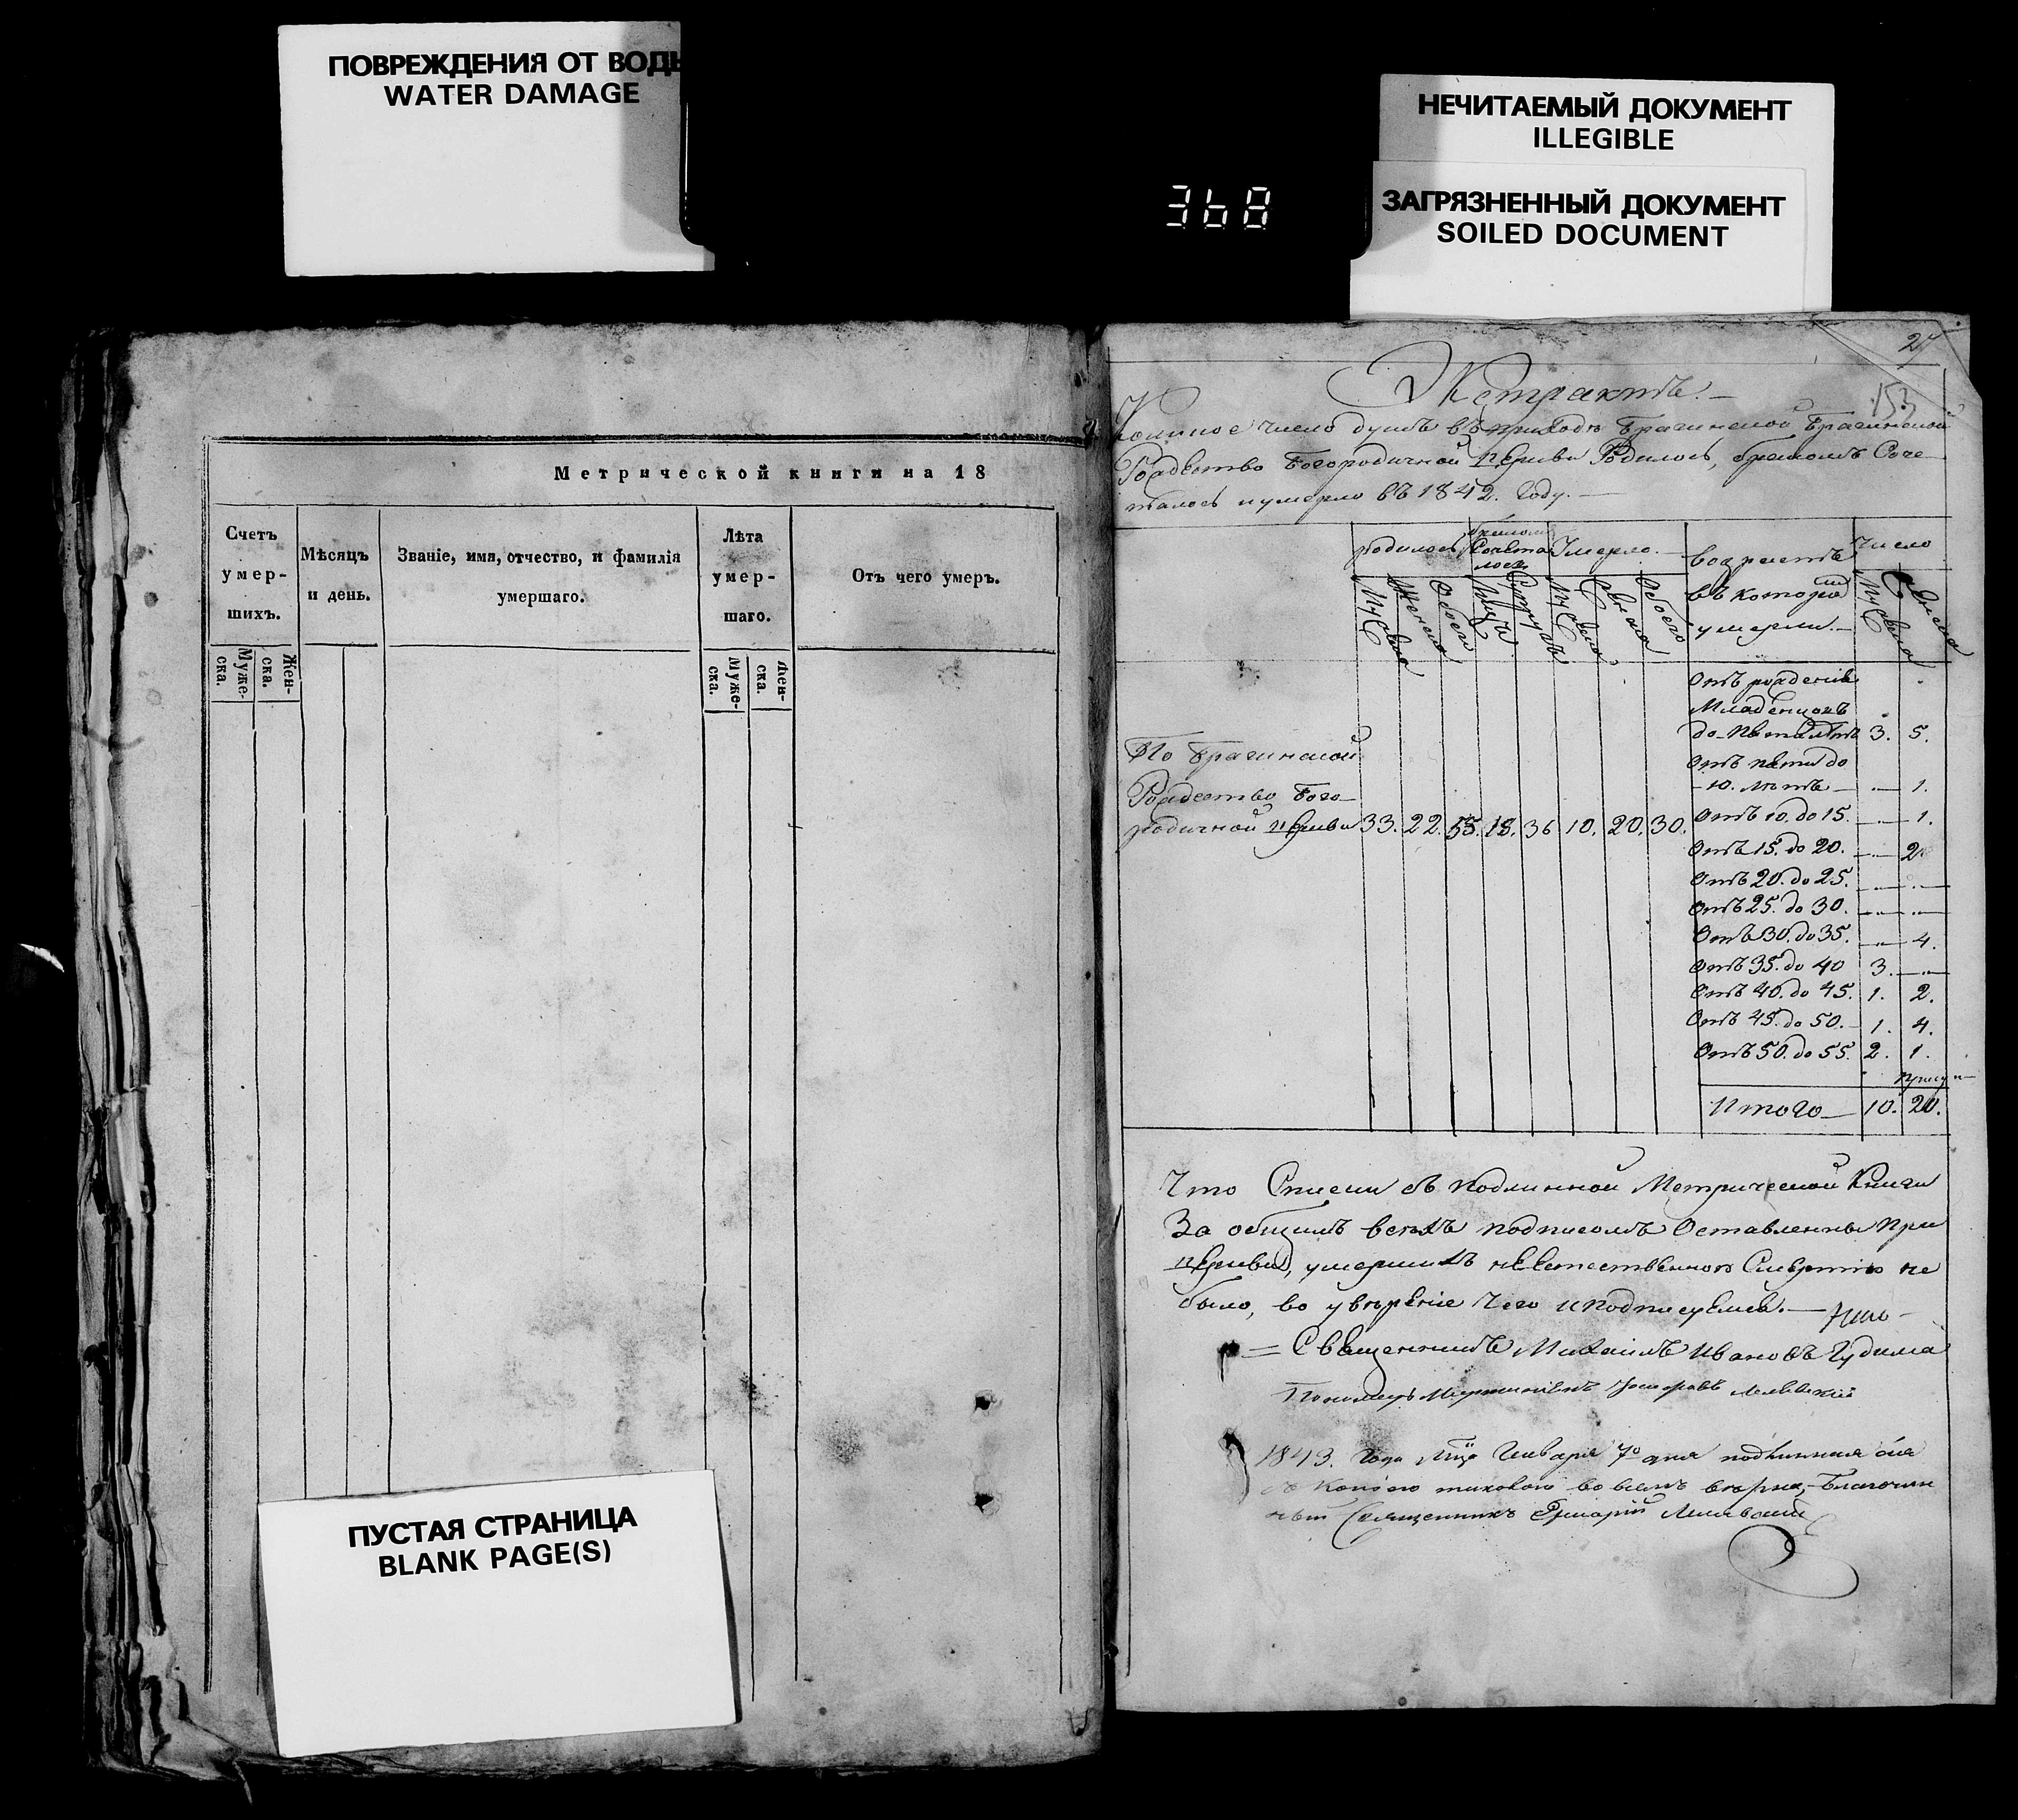 ПОВРЕЖДЕНИЯ ОТ ВОДЫ
WATER DAMAGE
НЕЧИТАЕМЫЙ ДОКУМЕНТ
ILLEGIBLE
ЗАГРЯЗНЕННЫЙ ДОКУМЕНТ
SOILED DOCUMENT
368
Метрической книги на 18
Счетъ умер-шихъ.
Мѣсяцъ и день.
Званіе, имя, отчество, и фамилія умершаго.
Лѣта умер-шаго.
Отъ чего умеръ.
Муже-ска.
Жен-ска.
Муже-ска.
Жен-ска.
ПУСТАЯ СТРАНИЦА
BLANK PAGE(S)
153
Экстрактъ.
число душъ въ приходѣ Брагинской Брагинской
Рождество Богородичной церкви Родилось, бракомъ Соче
талось и умерло въ 1842. Году.
родилось
бракомъ Сочета лось
Умерло.
возрастъ въ которо умерли.
Число
Мужеска
Женска
Обоего
Мужеска
Женска
Обоего
Мужеска
Женска
По Брагинской
Рождество Бого
родичной церкви 33. 22. 55. 18. 36 10. 20. 30.
Отъ рожденія
Младенцовъ
до пяти лѣтъ 3. 5.
Отъ пяти до
10. лѣтъ 1.
Отъ 10. до 15. 1.
Отъ 15. до 20. 2.
Отъ 20. до 25.
Отъ 25. до 30.
Отъ 30. до 35. 4.
Отъ 35. до 40 3.
Отъ 40. до 45. 1. 2.
Отъ 45. до 50. 1. 4.
Отъ 50. до 55. 2. 1.
Итого 10. 20.
Что Списки съ подлинной Метрической Книги
За общимъ всѣхъ подписомъ Оставлены при
церкви, умершихъ неестественною Смертію не
было, во увѣреніе чего и подписуемся.
Священникъ Михаилъ Ивановъ Гудима
Пономарь
1843. Года Мца Января 7го дня подлинная сія
съ Копіею таковою во всемъ вѣрна, Благочин
ный Священникъ